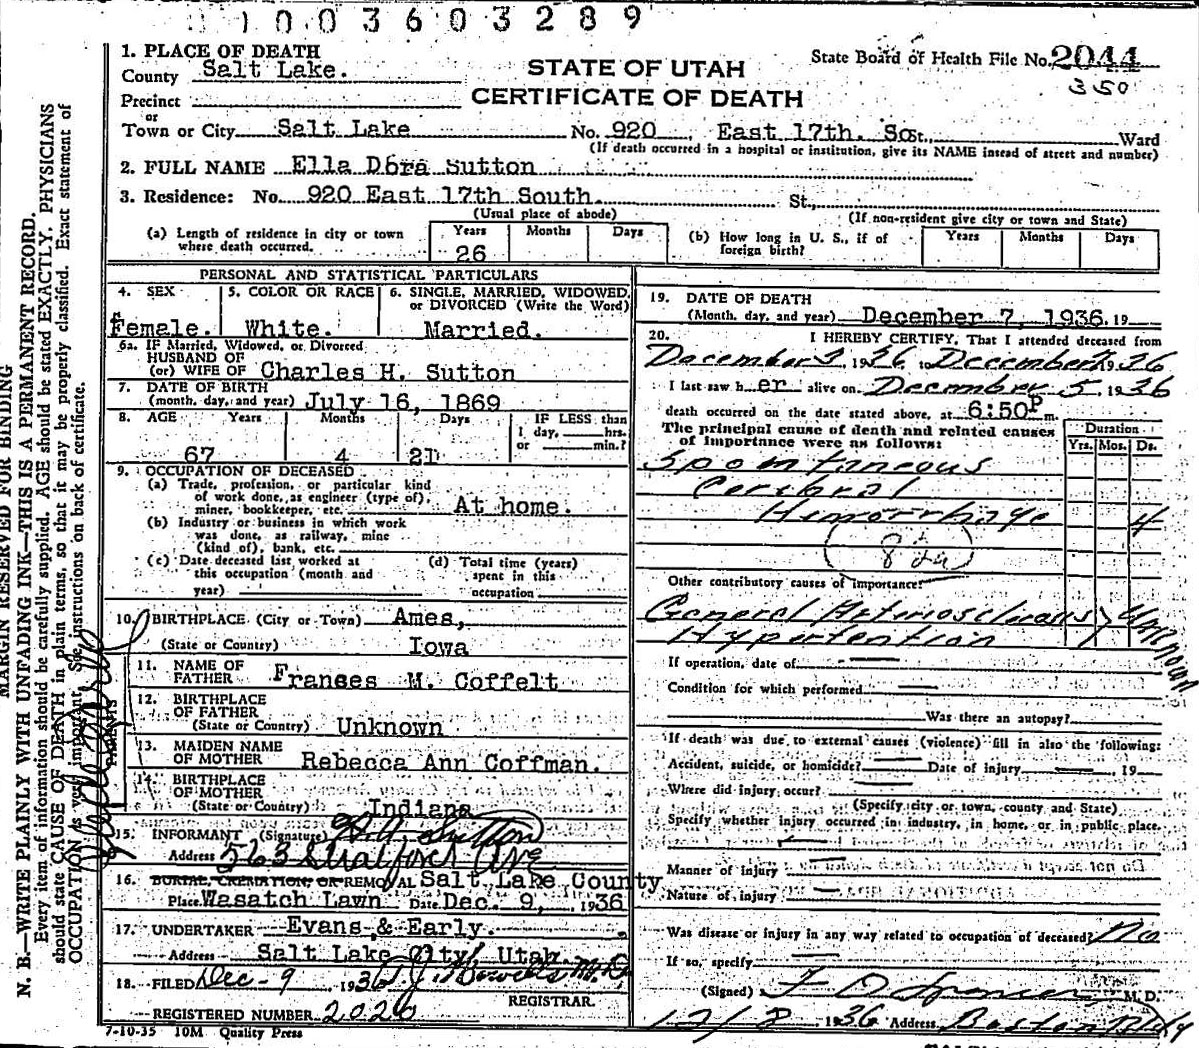 1003603289
1. PLACE OF DEATH
County Salt Lake.
STATE OF UTAH
CERTIFICATE OF DEATH
State Board of Health File No. 2044
350
Precinct
or
Town or City Salt Lake No. 920 East 17th. So. St., Ward
(If death occurred in a hospital or institution, give its NAME instead of street and number)
2. FULL NAME Ella Dora Sutton
3. Residence: No. 920 East 17th South. St.,
(Usual place of abode) (If non-resident give city or town and State)
(a) Length of residence in city or town where death occurred. Years 26 Months Days
(b) How long in U. S., if of foreign birth? Years Months Days
PERSONAL AND STATISTICAL PARTICULARS
4. SEX Female.
5. COLOR OR RACE White.
6. SINGLE, MARRIED, WIDOWED, or DIVORCED (Write the Word) Married.
6a. IF Married, Widowed, or Divorced
HUSBAND OF
(or) WIFE OF Charles H. Sutton
7. DATE OF BIRTH
(month, day, and year) July 16, 1869
8. AGE Years 67 Months 4 Days 21
IF LESS than 1 day, hrs. or min.?
9. OCCUPATION OF DECEASED
(a) Trade, profession, or particular kind
of work done, as engineer (type of),
miner, bookkeeper, etc. At home.
(b) Industry or business in which work
was done, as railway, mine
(kind of), bank, etc.
(c) Date deceased last worked at
this occupation (month and
year)
(d) Total time (years)
spent in this
occupation
10. BIRTHPLACE (City or Town) Ames,
(State or Country) Iowa
PARENTS
11. NAME OF
FATHER Franses M. Coffelt
12. BIRTHPLACE
OF FATHER
(State or Country) Unknown
13. MAIDEN NAME
OF MOTHER Rebecca Ann Coffman.
14. BIRTHPLACE
OF MOTHER
(State or Country) Indiana
15. INFORMANT (Signature) Sutton
Address 563 Stratford Ave
16. BURIAL, CREMATION, OR REMOVAL Salt Lake County
Place Wasatch Lawn Date Dec. 9, 1936
17. UNDERTAKER Evans & Early.
Address Salt Lake City, Utah.
18. FILED Dec - 9 1936 M.D.
REGISTRAR.
REGISTERED NUMBER 2026
7-10-35 10M Quality Press
19. DATE OF DEATH
(Month, day, and year) December 7, 1936. 19
20. I HEREBY CERTIFY, That I attended deceased from
December 3, 1936 to December 1936
I last saw her alive on December 5, 1936
death occurred on the date stated above, at 6:50P m.
The principal cause of death and related causes
of importance were as follows:
Duration
Yrs. Mos. Ds.
Spontaneous
Cerebral
Hemorrhage 4
Other contributory causes of importance:
General Arteriosclerosis
Hypertention
Unknown
If operation, date of
Condition for which performed
Was there an autopsy?
If death was due to external causes (violence) fill in also the following:
Accident, suicide, or homicide? Date of injury , 19
Where did injury occur?
(Specify city or town, county and State)
Specify whether injury occurred in industry, in home, or in public place.
Manner of injury
Nature of injury
Was disease or injury in any way related to occupation of deceased? No
If so, specify
(Signed) M. D.
12/8, 1936 Address Boston Bldg
MARGIN RESERVED FOR BINDING
N. B.—WRITE PLAINLY WITH UNFADING INK—THIS IS A PERMANENT RECORD.
Every item of information should be carefully supplied. AGE should be stated EXACTLY. PHYSICIANS
should state CAUSE OF DEATH in plain terms, so that it may be properly classified. Exact statement of
OCCUPATION is very important. See instructions on back of certificate.